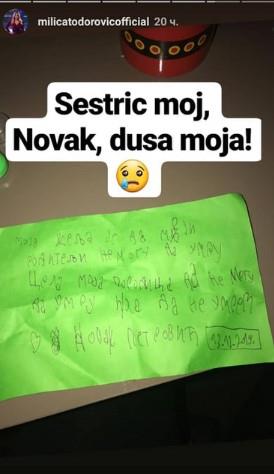 milicatodorovicofficial 20 ч.
Sestric moj,
Novak, dusa moja!
😢
моја жеља је да
родитељи не могу да умру
Цела моја породица да не могу
да умру да не умрем
♡ Новак Петровић